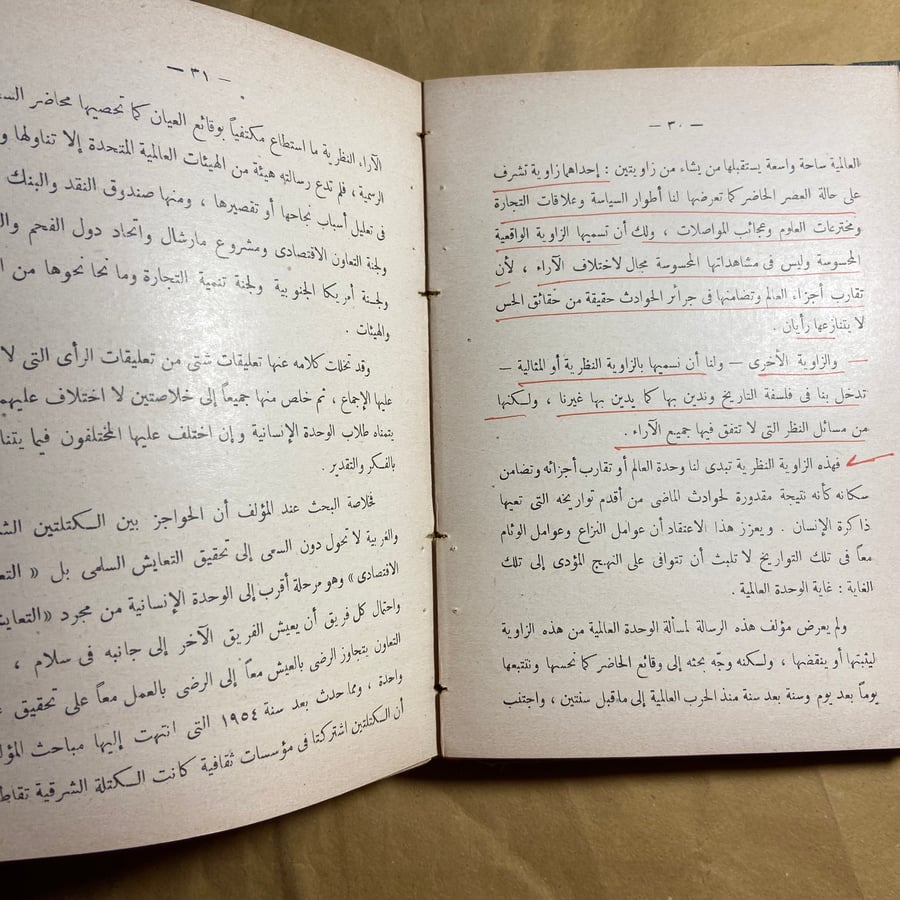 — ٣٠ —
العالمية ساحة واسعة يستقبلها من يشاء من زاويتين : إحداهما زاوية تشرف
على حالة العصر الحاضر كما تعرضها لنا أطوار السياسة وعلاقات التجارة
ومخترعات العلوم وعجائب المواصلات ، ولك أن تسميها الزاوية الواقعية
المحسوسة وليس فى مشاهداتها المحسوسة مجال لاختلاف الآراء ، لأن
تقارب أجزاء العالم وتضامنها فى جرائر الحوادث حقيقة من حقائق الحس
لا يتنازعها رأيان .
والزاوية الأخرى — ولنا أن نسميها بالزاوية النظرية أو المثالية —
تدخل بنا فى فلسفة التاريخ وندين بها كما يدين بها غيرنا ، ولكنها
من مسائل النظر التى لا تتفق فيها جميع الآراء .
فهذه الزاوية النظرية تبدى لنا وحدة العالم أو تقارب أجزائه وتضامن
سكانه كأنه نتيجة مقدورة لحوادث الماضى من أقدم تواريخه التى تعيها
ذاكرة الإنسان . ويعزز هذا الاعتقاد أن عوامل النزاع وعوامل الوئام
معاً فى تلك التواريخ لا تلبث أن تتوافى على النهج المؤدى إلى تلك
الغاية : غاية الوحدة العالمية .
ولم يعرض مؤلف هذه الرسالة لمسألة الوحدة العالمية من هذه الزاوية
ليثبتها أو ينقضها ، ولكنه وجّه بحثه إلى وقائع الحاضر كما نحسها ونتتبعها
يوماً بعد يوم وسنة بعد سنة منذ الحرب العالمية إلى ماقبل سنتين ، واجتنب
— ٣١ —
الآراء النظرية ما استطاع مكتفياً بوقائع العيان كما تحصيها محاضر
الرسمية ، فلم تدع رسالته هيئة من الهيئات العالمية المتحدة إلا تناولها
فى تعليل أسباب نجاحها أو تقصيرها ، ومنها صندوق النقد والبنك
ولجنة التعاون الاقتصادى ومشروع مارشال واتحاد دول الفحم
ولجنة أمريكا الجنوبية ولجنة تنمية التجارة وما نحا نحوها من
والهيئات .
وقد تخللت كلامه عنها تعليقات شتى من تعليقات الرأى التى لا
عليها الإجماع ، ثم خلص منها جميعاً إلى خلاصتين لا اختلاف عليهم
يتمناه طلاب الوحدة الإنسانية وإن اختلف عليها المختلفون فيما
بالفكر والتقدير .
فخلاصة البحث عند المؤلف أن الحواجز بين الكتلتين
والغربية لا تحول دون السعى إلى تحقيق التعايش السلمى بل «
الاقتصادى » وهو مرحلة أقرب إلى الوحدة الإنسانية من مجرد «
واحتمال كل فريق أن يعيش الفريق الآخر إلى جانبه فى سلام ،
التعاون يتجاوز الرضى بالعيش معاً إلى الرضى بالعمل معاً على تحقيق
واحدة ، ومما حدث بعد سنة ١٩٥٤ التى انتهت إليها مباحث
أن الكتلتين اشتركتا فى مؤسسات ثقافية كانت الكتلة الشرقية